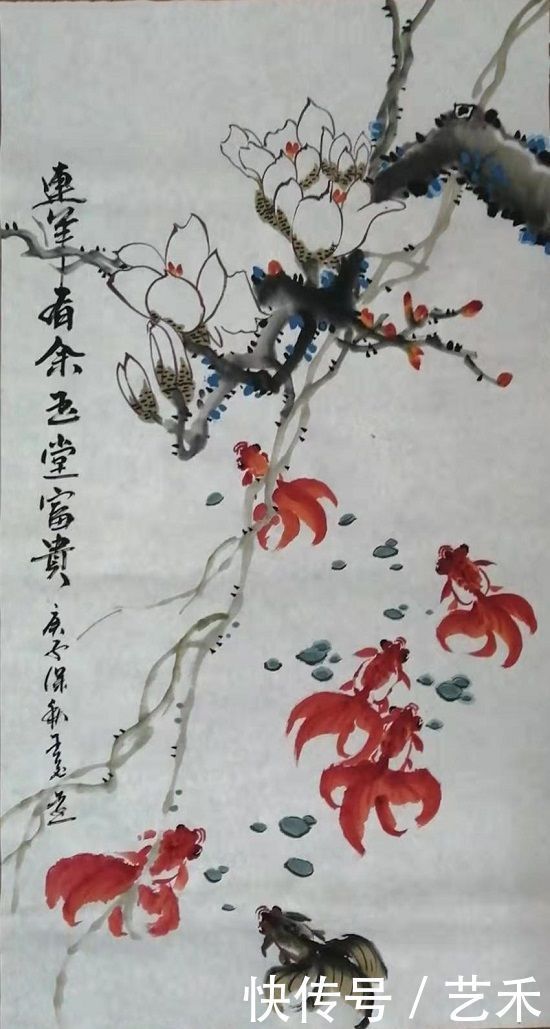 連年有余玉堂富貴
庚子深秋
快传号/艺禾